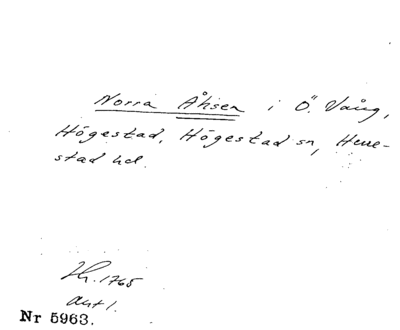 Norra Åhsen i Ö. Vång,
Högestad, Högestad sn, Herre-
stad hd.
Lh. 1765
akt 1.
Nr 5963.